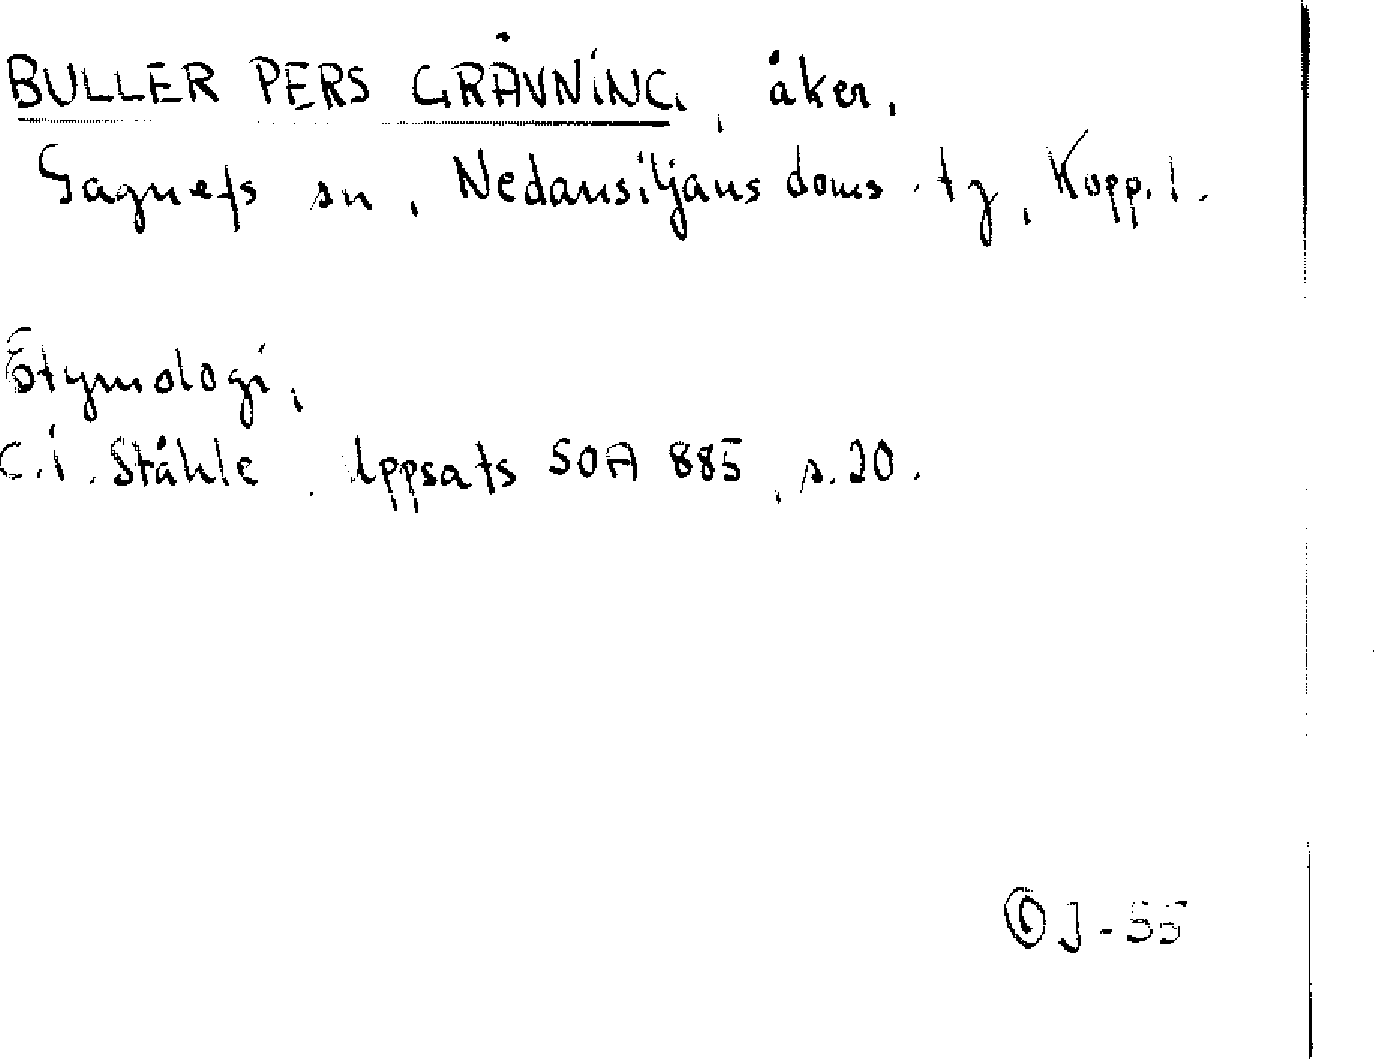 BULLER PERS GRÄVNING, åker.
Gagnefs sn, Nedansiljans doms. tg, Kopp. l.
Etymologi,
C.I. Ståhle, Uppsats SOA 885, s. 20.
ÖJ-55